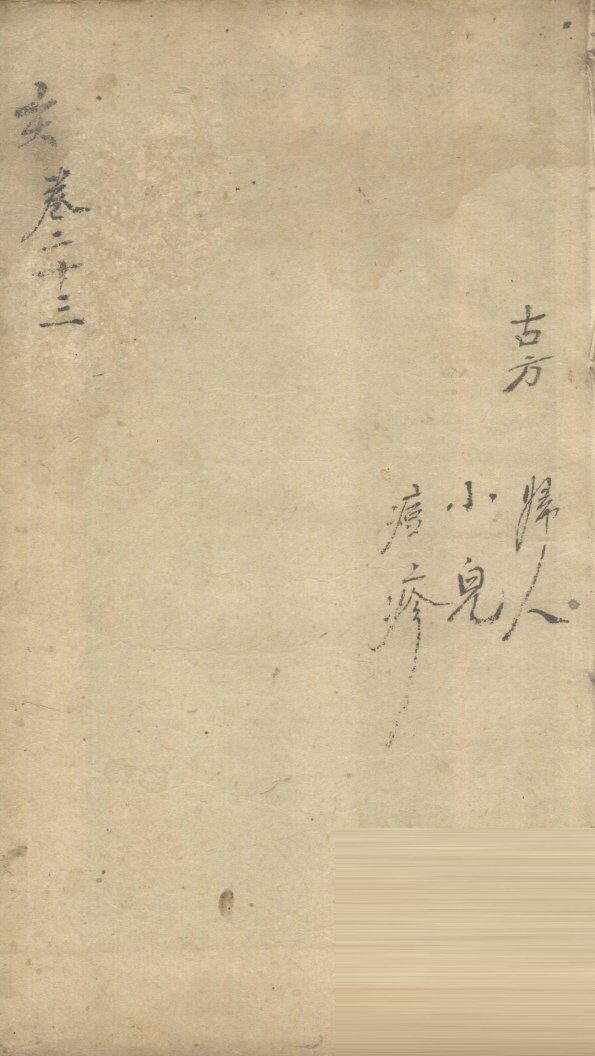 古方
婦人
小兒
痘疹
亥 卷二十三